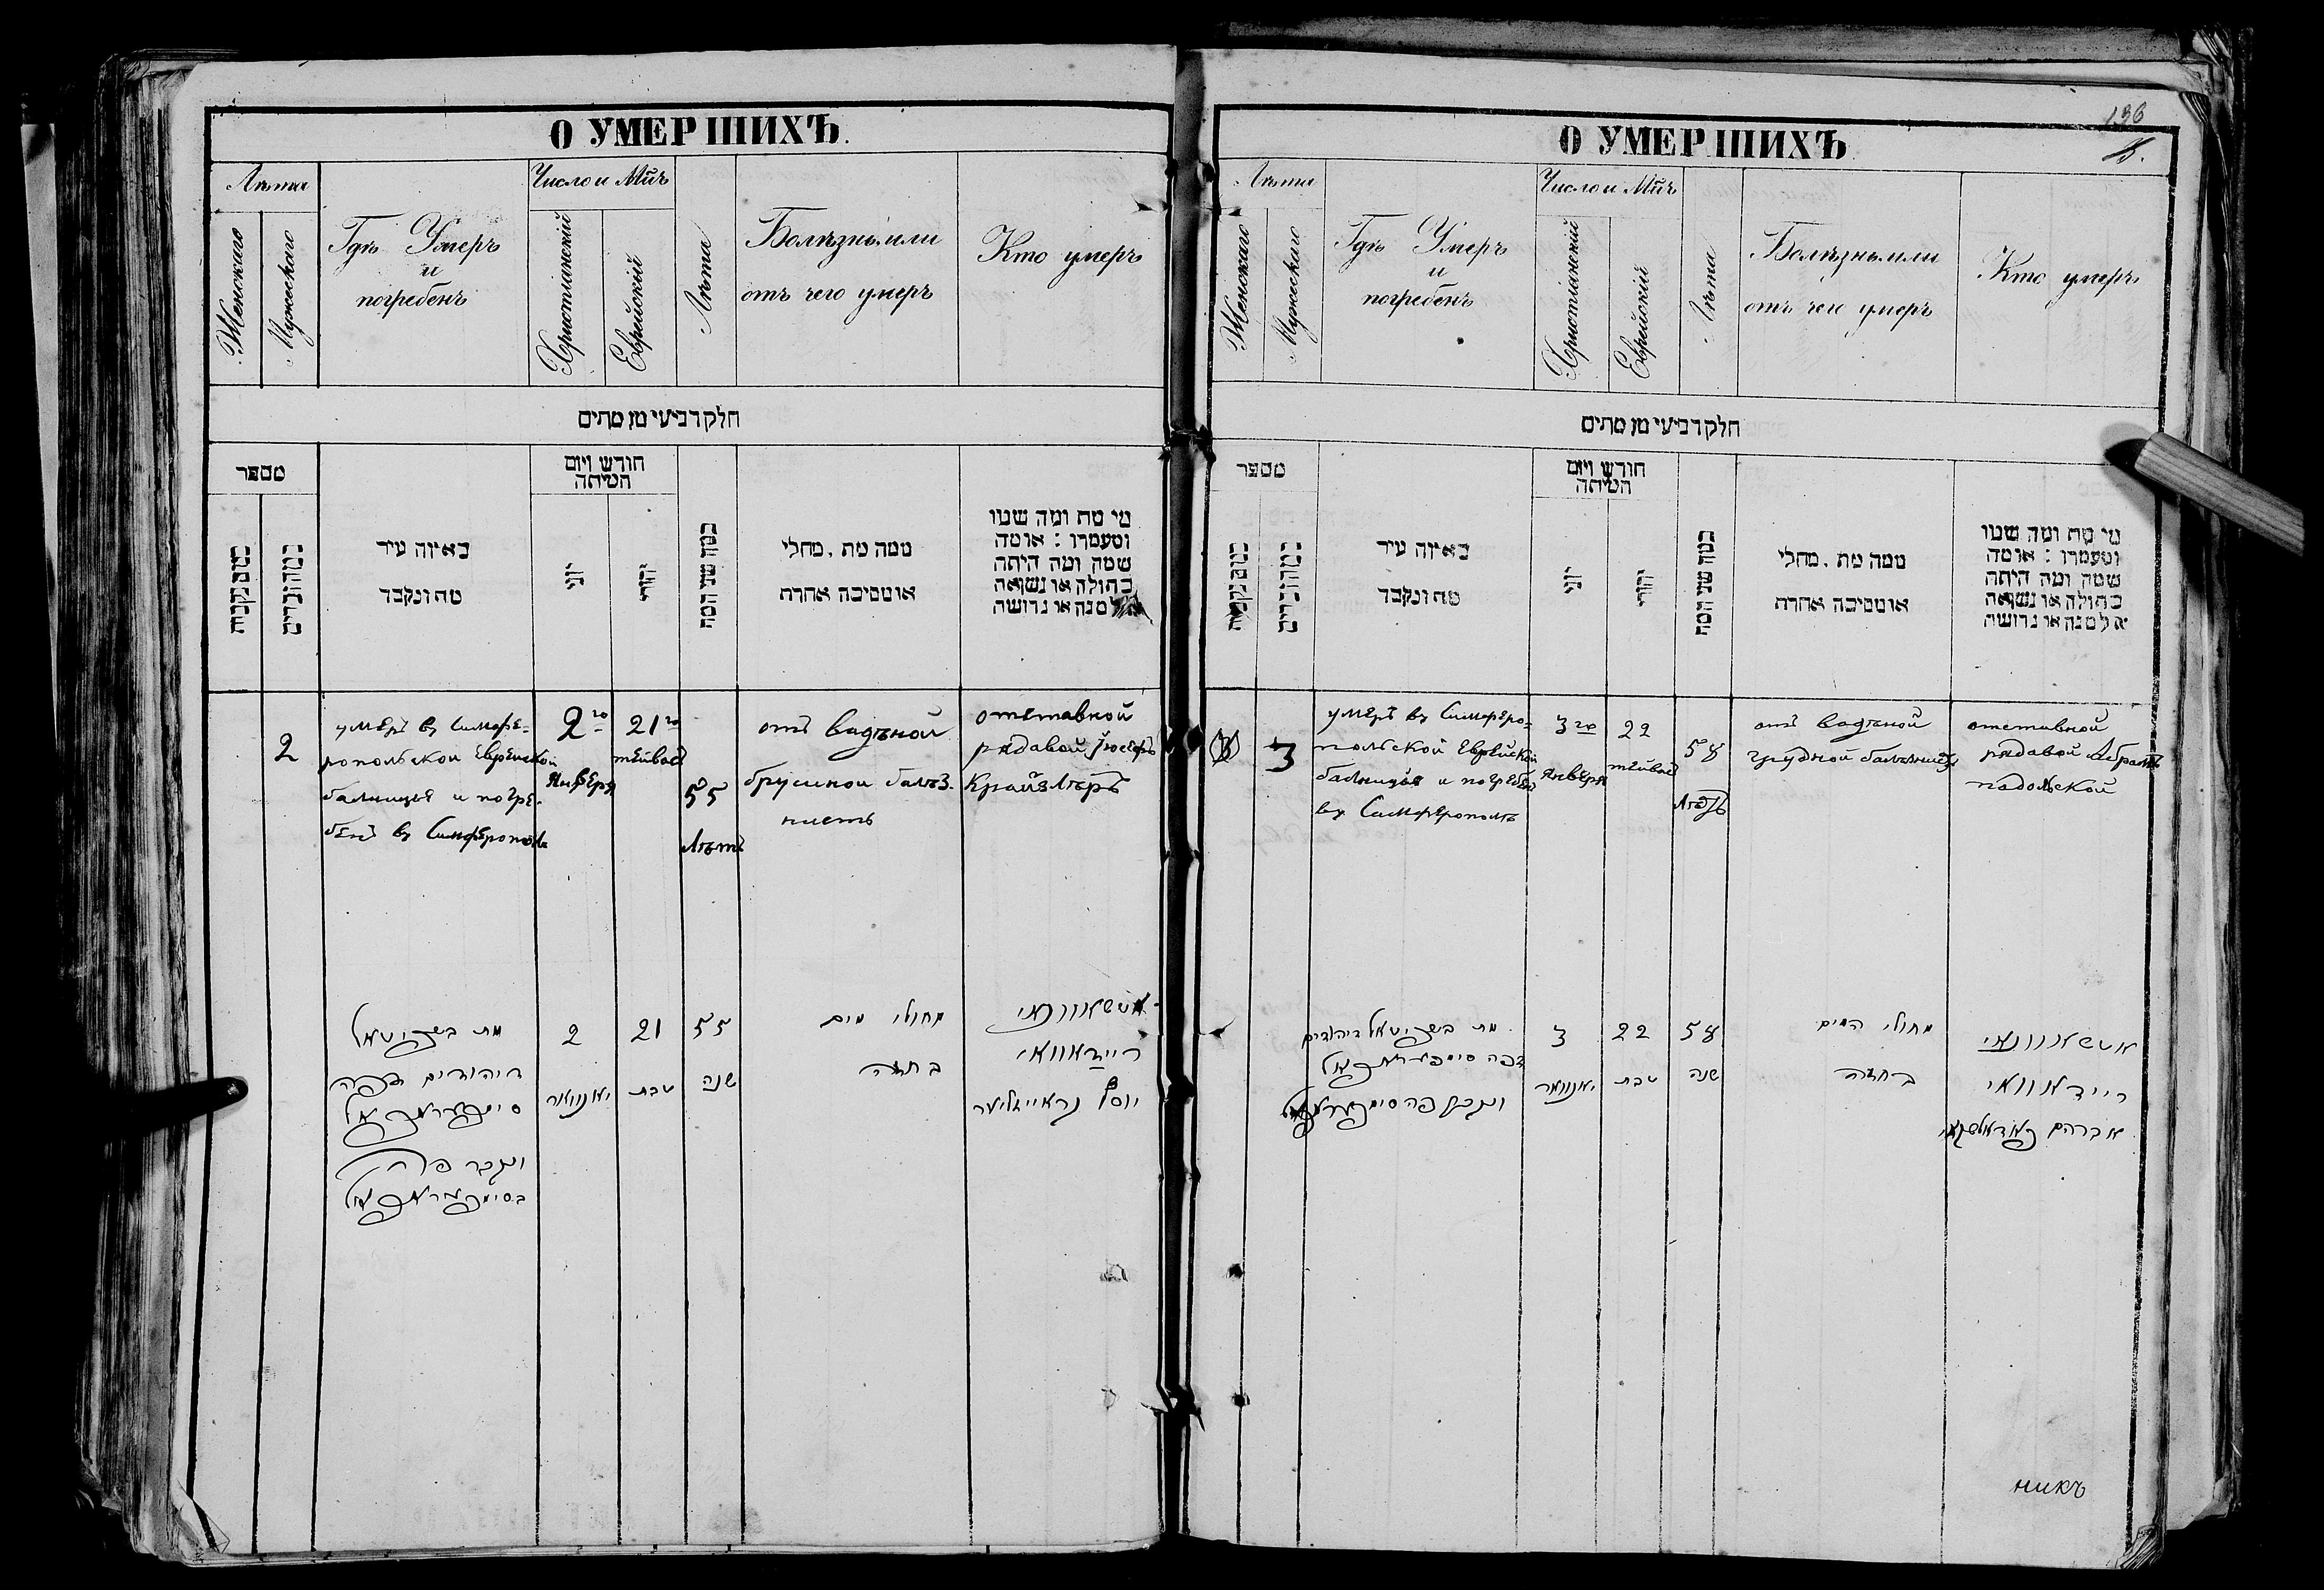 О УМЕРШИХЪ.
Лѣта
Женскаго
Мужескаго
Гдѣ Умеръ
и
погребенъ
Число и Мц̃ъ
Христіанскій
Еврейскій
Лѣта
Болѣзнь или
отъ чего умеръ
Кто умеръ
חלק רביעי מן מתים
מספר
כמה נקבות
כמה זכרים
באיזה עיר
מת ונקבר
חודש ויום
המיתה
יוני
יהודי
כמה שני המת
ממה מת, מחלי
או מסיבה אחרת
מי מת ומה שמו
ומעמדו : או מה
שמה ומה היתה
בתולה או נשואה
אלמנה או גרושה
2
умеръ въ Симфе-
ропольской Еврейской
балницыя и погре-
бенъ въ Симферополѣ
2го
Января
21го
тейвас
55
Лѣтъ
отъ вадяной
грудной балѣз-
ниетъ
отставной
рядавой Іосефъ
Крайзлеръ
מת בשפיטאל
היהודים דפה
סימפעראפאל
ונקבר פה
בסימפעראפאל
2
יאנוואר
21
טבת
55
שנה
מחולי מים
בחזה
אטשטאוונאי
ריידאוואי
יוסף קראייזלער
О УМЕРШИХЪ
136
Лѣта
Женскаго
Мужескаго
Гдѣ Умеръ
и
погребенъ
Число и Мц̃ъ
Христіанскій
Еврейскій
Лѣта
Болѣзнь или
отъ чего умеръ
Кто умеръ
חלק רביעי מן מתים
מספר
כמה נקבות
כמה זכרים
באיזה עיר
מת ונקבר
חודש ויום
המיתה
יוני
יהודי
כמה שני המת
ממה מת, מחלי
או מסיבה אחרת
מי מת ומה שמו
ומעמדו : או מה
שמה ומה היתה
בתולה או נשואה
אלמנה או גרושה
3
умеръ въ Симферо-
польской Еврейской
балницыя и погребен
въ Симферополѣ
3го
Января
22
тейвас
58
Лѣтъ
отъ вадяной
грудной
отставной
рядавой Абрамъ
падольской
מת בשפיטאל היהודים
דפה סימפעראפאל
ונקבר פה סימפעראפאל
3
יאנוואר
22
טבת
58
שנה
מחולי המים
בחזה
אטשטאוונאי
ריידאוואי
אברהם פאדאלסקאי
никъ